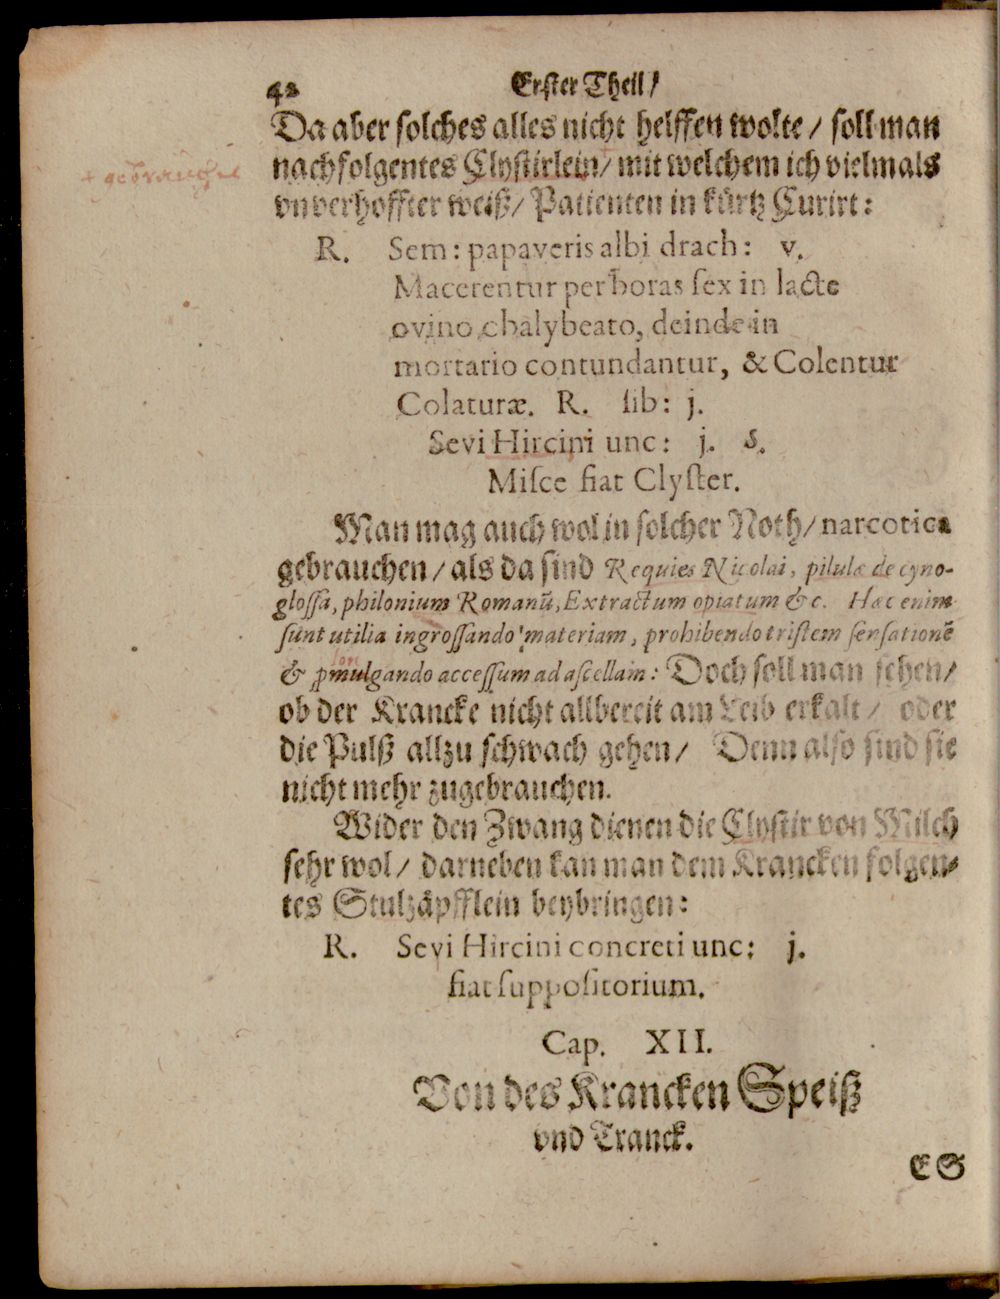 42 Erster Theil/
Da aber solches alles nicht helffen wolte / soll man
nachfolgentes Clystirlein / mit welchem ich vielmals
+ gebrauche
vnverhoffter weiß / Patienten in kürtz Curirt:
R. Sem: papaveris albi drach: v.
Macerentur per horas ſex in lacte
ovino chalybeato, deinde in
mortario contundantur, & Colentur
Colaturæ. R. lib: j.
Sevi Hircini unc: j. ß.
Miſce fiat Clyſter.
Man mag auch wol in solcher Noth / narcotica
gebrauchen / als da sind Requies Nicolai, pilulæ de cyno-
gloſſa, philonium Romanū, Extractum opiatum &c. Hæc enim
ſunt utilia ingroſſando materiam, prohibendo triſtem ſenſationē
& ꝓmulgando acceſſum ad aſcellam: Doch soll man sehen /
ob der Krancke nicht allbereit am Leib erkalt / oder
die Pulß allzu schwach gehen / Denn also sind sie
nicht mehr zugebrauchen.
Wider den Zwang dienen die Clystir von Milch
sehr wol / darneben kan man dem Krancken folgen-
tes Stulzåpfflein beybringen:
R. Sevi Hircini concreti unc: j.
fiat ſuppoſitorium.
Cap. XII.
Von des Krancken Speiß
vnd Tranck.
ES